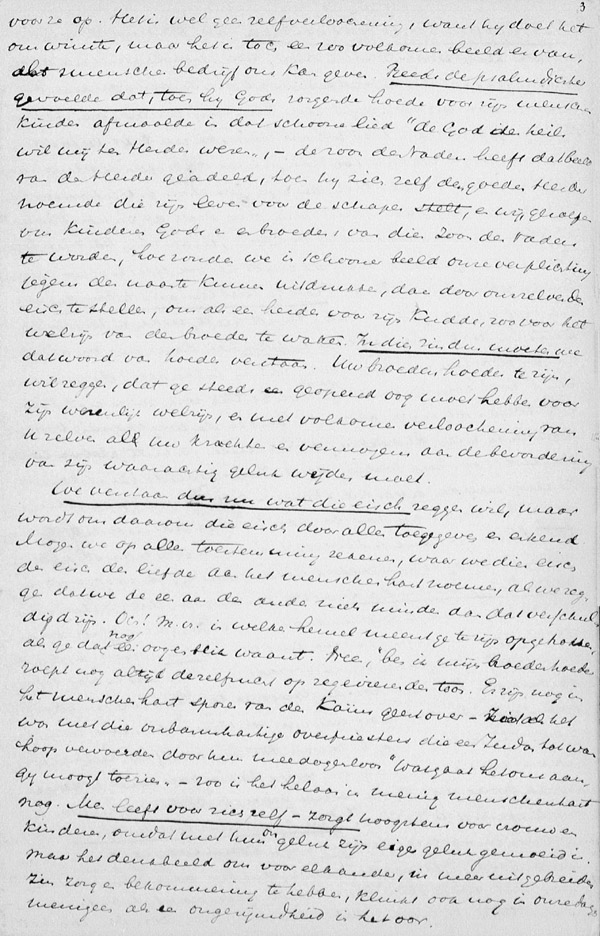 3
voor ze op. Het is wel geen zelfverloochening, want hy doet het
om winste, maar het is toch een zoo volkomen beeld er van,
als menschen bedrijf ons kan geven. Reeds de psalmdichter
gevoelde dat, toen hy Gods zorgende hoede voor zijn menschen
kinderen afmaalde in dat schoone lied "de God des heils
wil mij ten Herder wezen", – de zoon des Vaders heeft dat beeld
van den Herder geadeld, toen hy zich zelf den goeden Herder
noemde die zijn leven voor de schapen stelt, en wij, geroepen
om kinderen Gods en broeders van dien Zoon des Vaders
te worden, hoe zouden we in schooner beeld onze verplichting
jegens den naaste kunnen uitdrukken, dan door ons zelven den
eisch te stellen, om als een herder voor zijn kudde, zoo voor het
welzijn van den broeder te waken. In dien zin dus moeten we
dat woord van hoeder verstaan. Uw broeders hoeder te zijn,
wil zeggen, dat ge steeds een geopend oog moet hebben voor
zijn wezenlijk welzijn, en met volkomen verloochening van
u zelven all uw krachten en vermogens aan de bevordering
van zijn waarachtig geluk wijden moet.
We verstaan dus nu wat die eisch zeggen wil, maar
wordt ons daarom die eisch door allen toegegeven en erkend
Mogen we op aller toestemming rekenen, waar we dien eisch
den eisch der liefde aan het menschenhart noemen, als we zeg
ge dat we de een aan de ander niets minder dan dat verschul
digd zijn. Och! m. vr. in welken hemel meent ge te zijn opgenomen,
als ge dat nog een oogenblik waant. Neen, "ben ik mijns broeders hoeder
roept nog altijd de zelfzucht op regeerenden toon. Er zijn nog in
het menschenhart sporen van den Kaïns geest over – Zooals het
was met die onbarmhartige overpriesters die een Judas tot wan
hoop vervoerden door hun meedogenloos "Wat gaat het ons aan,
gy moogt toezien. – zoo is het helaas in menig menschenhart
nog. Men leeft voor zich zelf – zorgt hoogstens voor vrouw en
kinderen, omdat met hun geluk zijn eigen geluk gemoeid is.
Maar het denkbeeld om voor elkander, in meer uitgebreiden
zin zorg en bekommering te hebben, klinkt ook nog in onze dagen
menigeen als een ongerijmdheid in het oor.